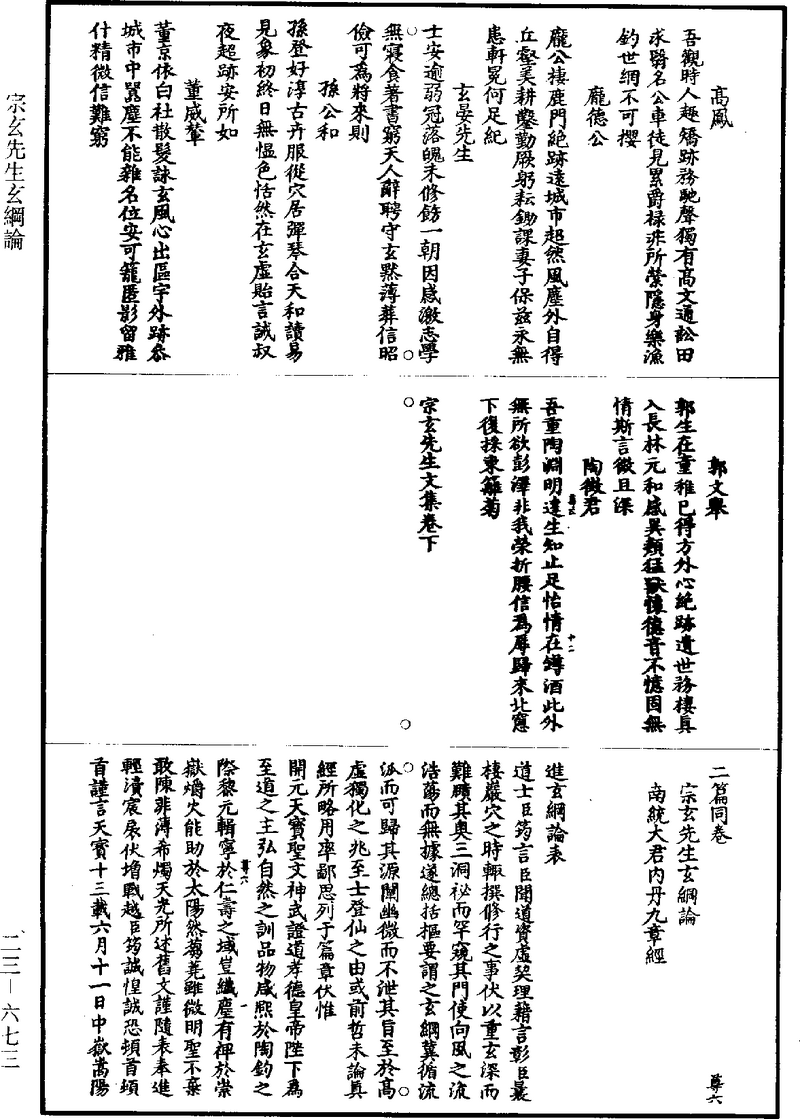 高鳳
吾觀時人趣矯跡務馳聲獨有高文通訟田
求翳名公車徒見累爵祿非所縈隱身樂漁
釣世網不可攖
龐德公
龐公棲鹿門絕跡遠城市超然風塵外自得
丘壑美耕鑿勤厥躬耘鋤課妻子保茲永無
患軒冕何足紀
玄晏先生
士安逾弱冠落魄未修飭一朝因感激志學
無寢食著書窮天人辭聘守玄默薄葬信昭
儉可為將來則
孫公和
孫登好淳古卉服從穴居彈琴合天和讀易
見象初終日無慍色恬然在玄虛貽言誡叔
夜超跡安所如
董威輦
董京依白社散髮詠玄風心出區宇外跡參
城市中囂塵不能雜名位安可籠匿影留雅
什精微信難窮
郭文舉
郭生在童稚已得方外心絕跡遺世務棲真
入長林元和感異類猛獸懷德音不憶固無
情斯言微且深
陶徵君
吾重陶淵明達生知止足怡情在罇酒此外
無所欲彭澤非我榮折腰信為辱歸來北窻
下復採東籬菊
尊五
十二
宗玄先生文集卷下
二篇同卷
尊六
宗玄先生玄綱論
南統大君內丹九章經
進玄綱論表
道士臣筠言臣聞道資虛契理藉言彰臣曩
棲巖穴之時輒撰修行之事伏以重玄深而
難賾其奧三洞祕而罕窺其門使向風之流
浩蕩而無據遂總括樞要謂之玄綱冀循流
派而可歸其源闡幽微而不泄其旨至於高
虛獨化之兆至士登仙之由或前哲未論真
經所略用率鄙思列于篇章伏惟
開元天寶聖文神武證道孝德皇帝陛下為
至道之主弘自然之訓品物咸熙於陶鈞之
尊六
一
際黎元輯寧於仁壽之域豈纖塵有裨於崇
嶽爝火能助於太陽然蒭蕘雖微明聖不棄
敢陳菲薄希燭天光所述舊文謹隨表奉進
輕瀆宸扆伏增戰越臣筠誠惶誠恐頓首頓
首謹言天寶十三載六月十一日中嶽嵩陽
宗玄先生玄綱論
二三－六七三